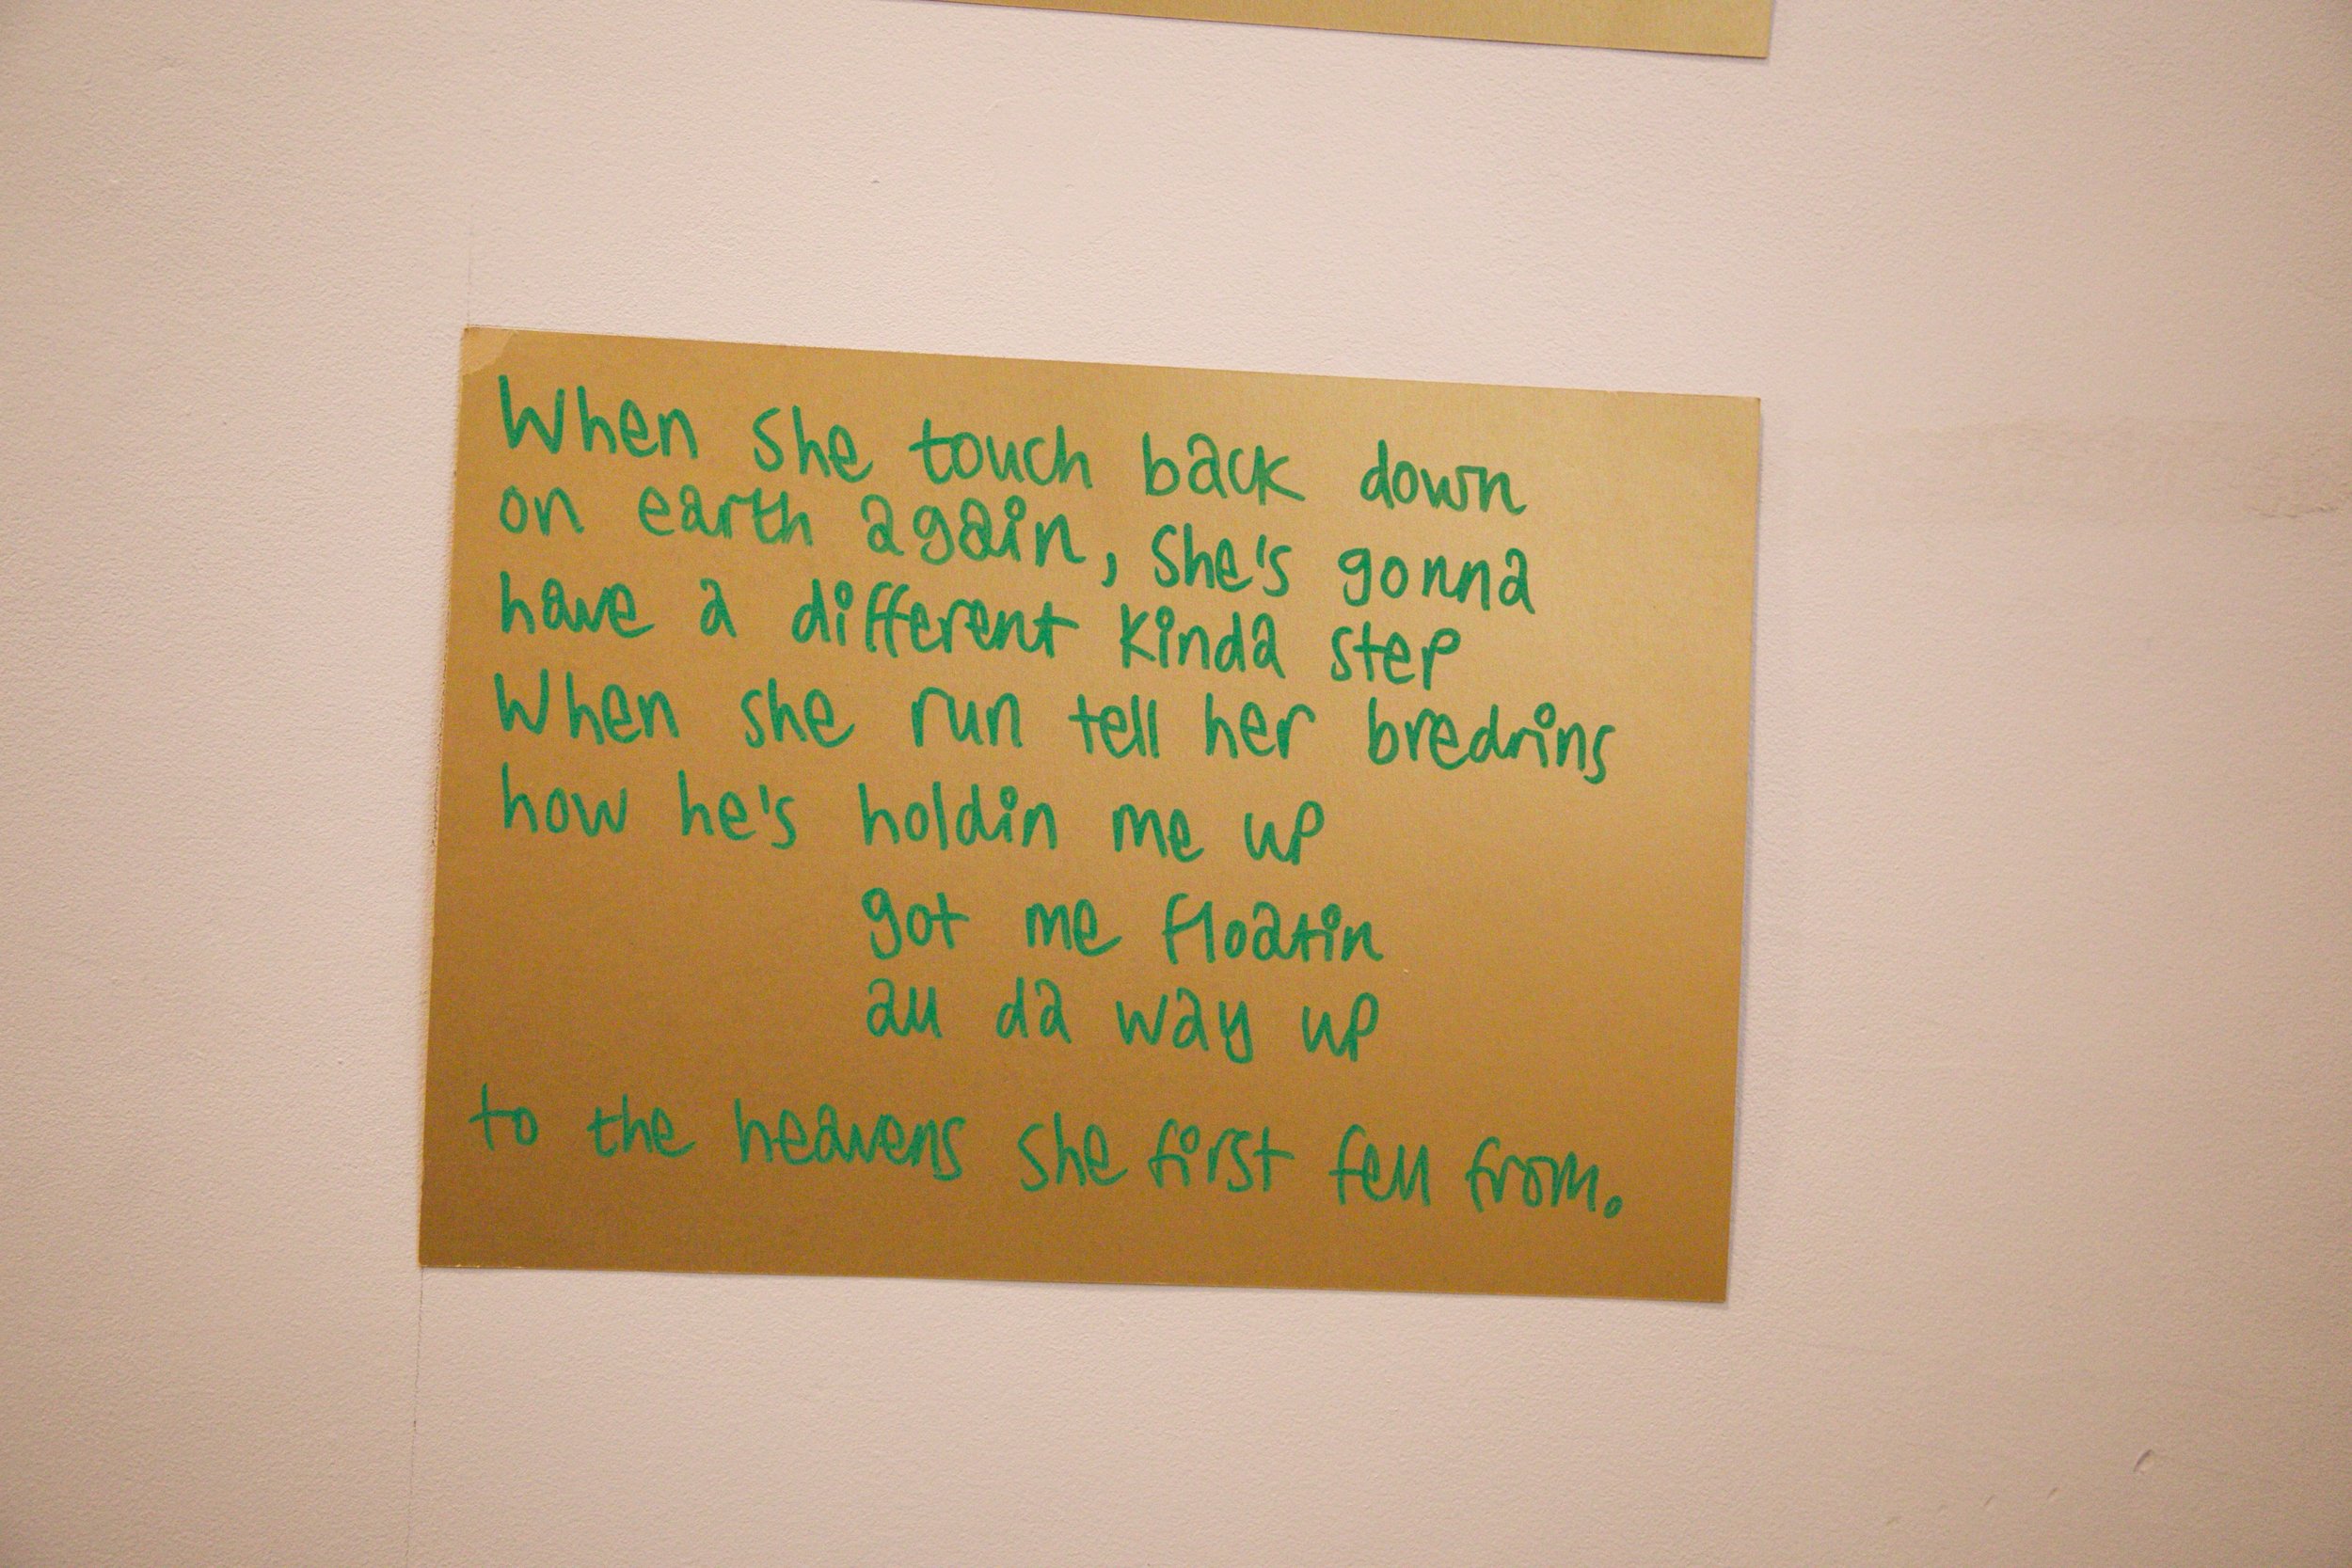 When she touch back down
on earth again, she's gonna
have a different kinda step
When she run tell her bredrins
how he's holdin me up
got me floatin
all da way up
to the heavens she first fell from.